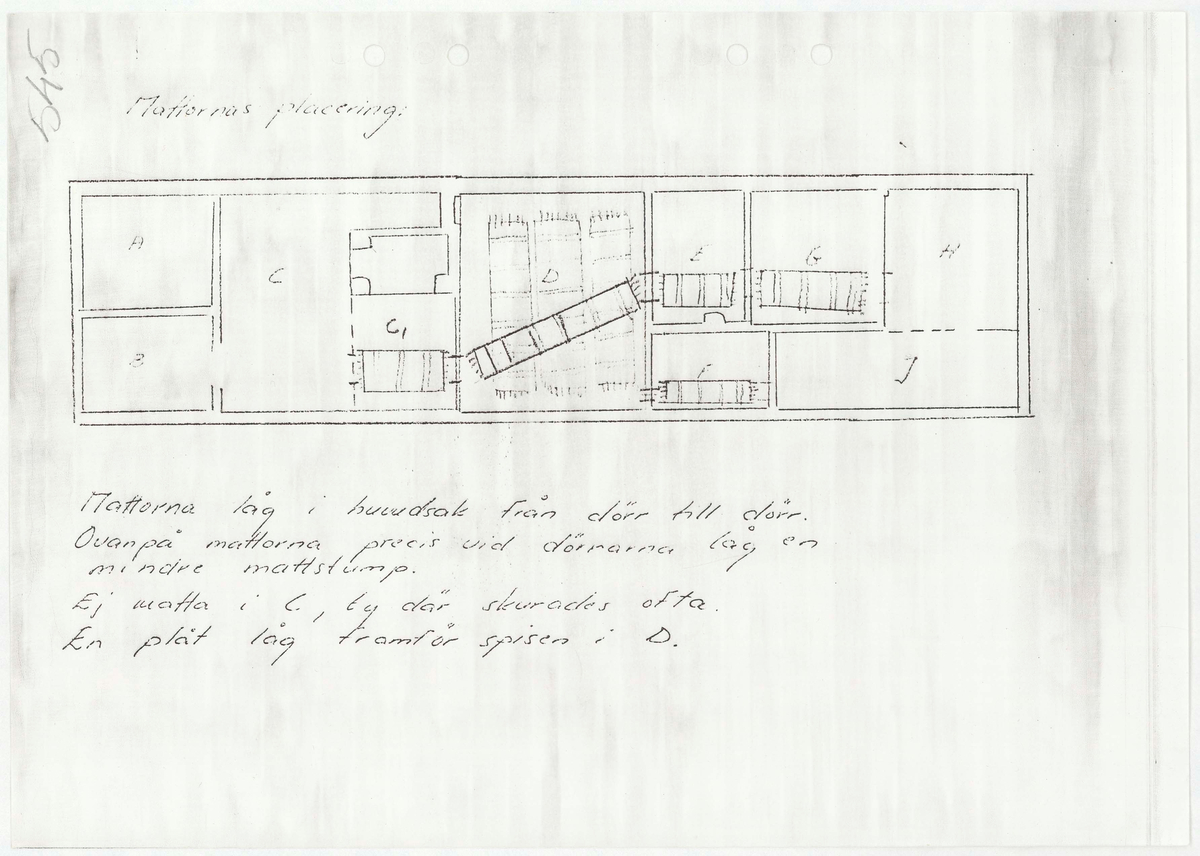 545
Mattornas placering:
A
C
D
E
G
H
B
C1
F
J
Mattorna låg i huvudsak från dörr till dörr.
Ovanpå mattorna precis vid dörrarna låg en
mindre mattstump.
Ej matta i C, ty där skurades ofta.
En plåt låg framför spisen i D.